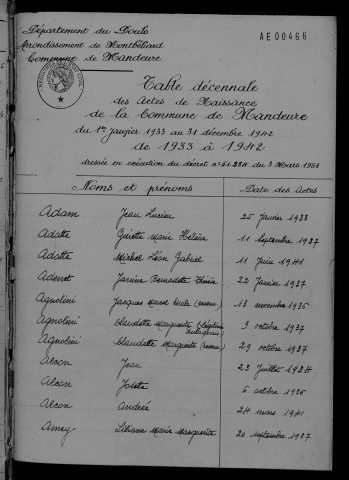 Département du Doubs
Arrondissement de Montbéliard
Commune de Mandeure
AE00466
Table décennale
des Actes de Naissance
de la Commune de Mandeure
du 1er janvier 1933 au 31 décembre 1942
de 1933 à 1942
dressée en exécution du décret n° 51.284 du 3 Mars 1951
Noms et prénoms Date des Actes
Adam Jean Lucien 25 janvier 1933
Adatte Ginette Marie Hélène 11 Septembre 1937
Adatte Michel Léon Gabriel 11 juin 1941
Adenet Janine Bernadette 22 janvier 1937
Agnolini Jacques Marcel 13 novembre 1935
Agnolini Claudette Marguerite 9 octobre 1937
Agnolini Claudette Marguerite 29 octobre 1937
Alcon Jean 23 juillet 1934
Alcon Josette 6 octobre 1936
Alcon Andrée 24 mars 1941
Amey Liliane Marie Marguerite 20 septembre 1937